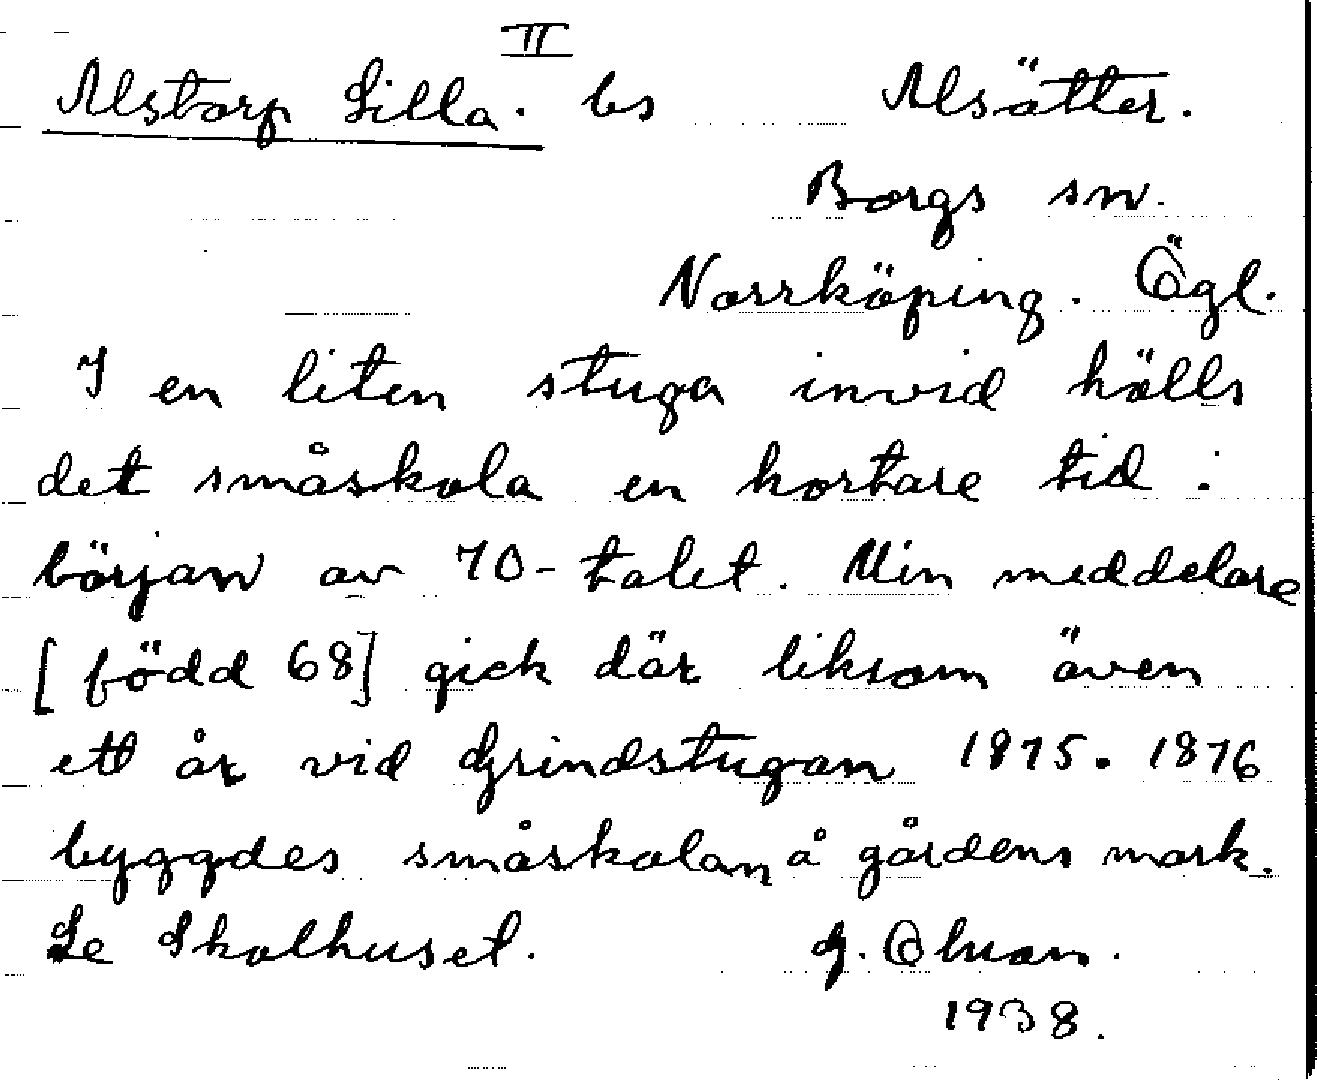 II
Alstorp Lilla. bs Alsätter.
Borgs sn.
Norrköping. Ögl.
I en liten stuga invid hölls
det småskola en kortare tid i
början av 70-talet. Min meddelare
[född 68] gick där liksom även
ett år vid Grindstugan 1875. 1876
byggdes småskolan å gårdens mark.
Se Skolhuset. G.
1938.